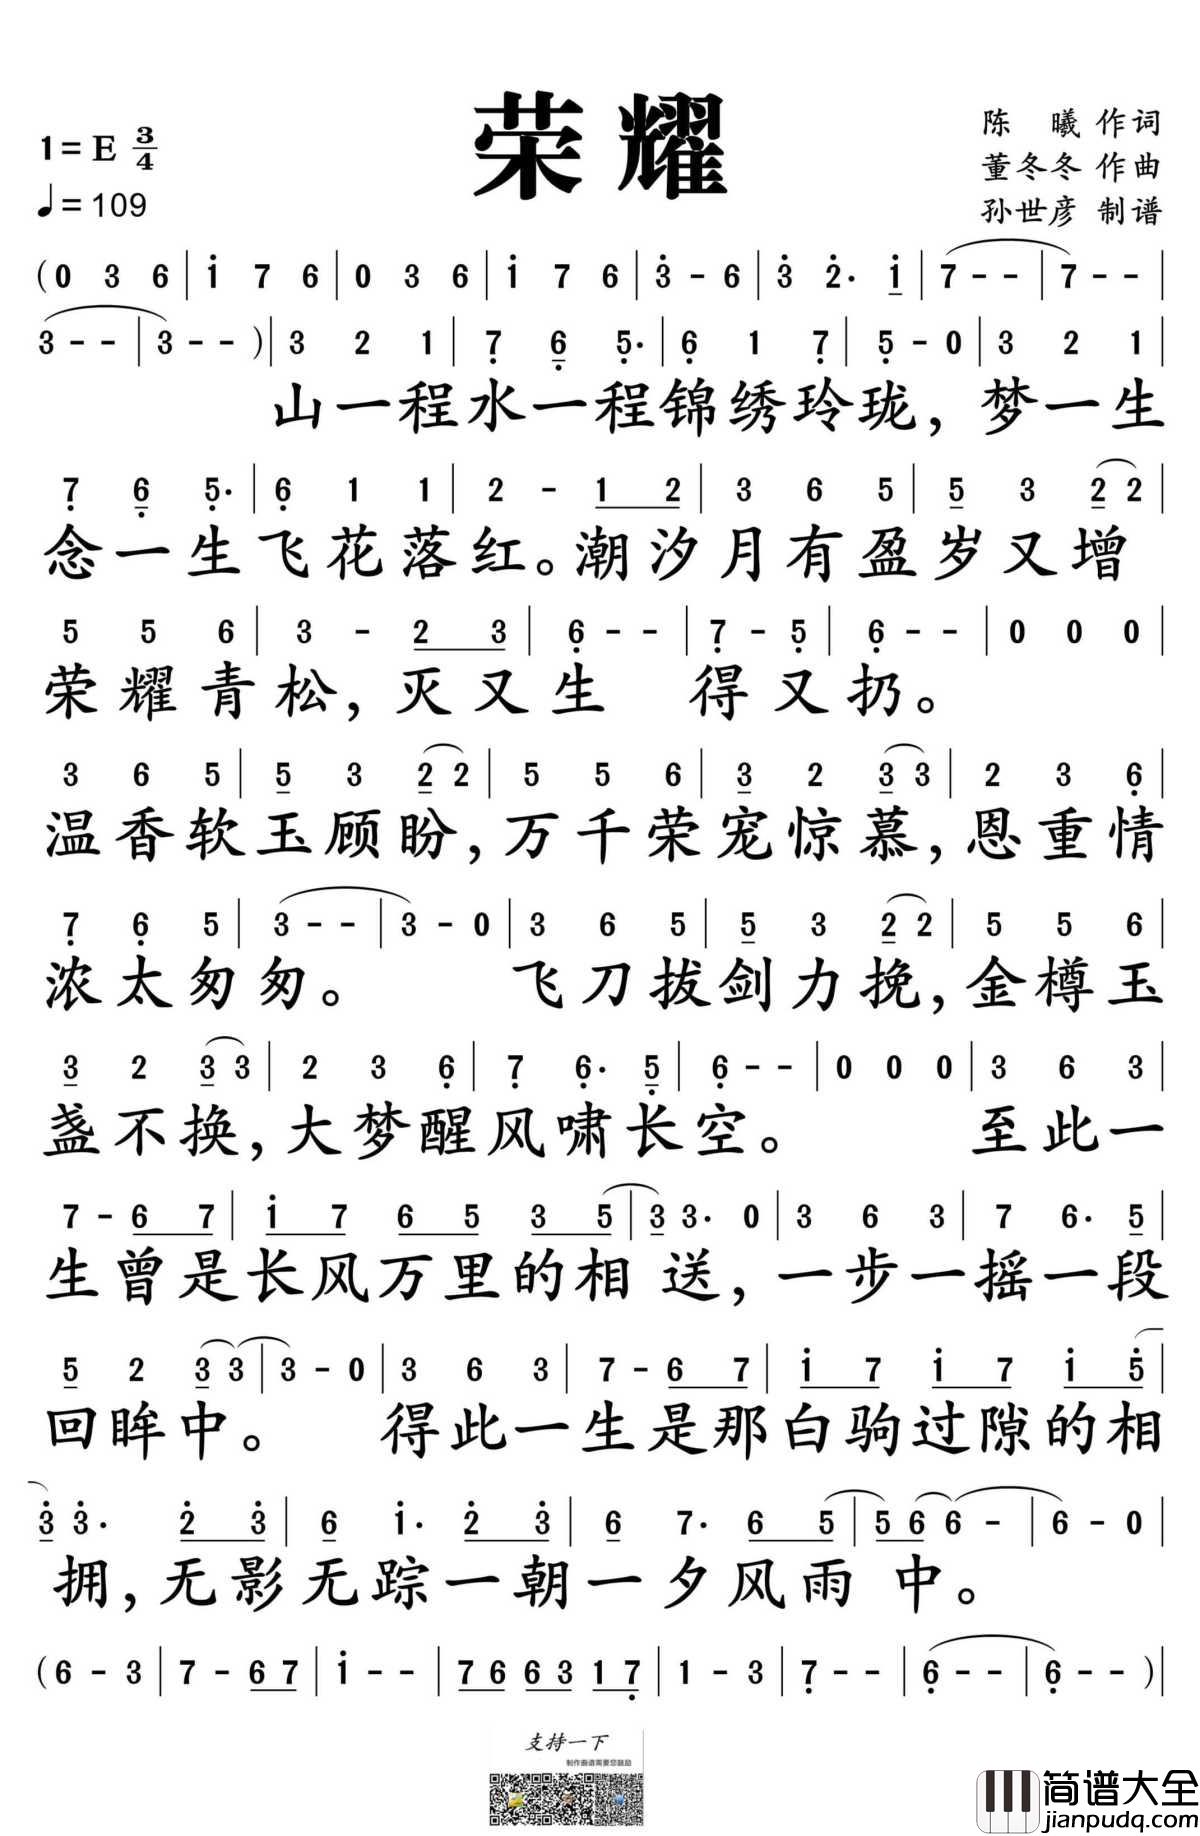 荣耀
1=E 3/4
♩=109
陈 曦 作词
董冬冬 作曲
孙世彦 制谱
(0 3 6 | i 7 6 | 0 3 6 | i 7 6 | 3̇ - 6 | 3̇ 2̇· i | 7 - - | 7 - - |
3 - - | 3 - - )| 3 2 1 | 7̣ 6̣ 5̣· | 6̣ 1 7̣ | 5̣ - 0 | 3 2 1 |
山一程水一程锦绣玲珑,梦一生
7̣ 6̣ 5̣· | 6̣ 1 1 | 2 - 1 2 | 3 6 5 | 5 3 2 2 |
念一生飞花落红。潮汐月有盈岁又增
5 5 6 | 3 - 2 3 | 6̣ - - | 7̣ - 5̣ | 6̣ - - | 0 0 0 |
荣耀青松,灭又生 得又扔。
3 6 5 | 5 3 2 2 | 5 5 6 | 3 2 3 3 | 2 3 6̣ |
温香软玉顾盼,万千荣宠惊慕,恩重情
7̣ 6̣ 5 | 3 - - | 3 - 0 | 3 6 5 | 5 3 2 2 | 5 5 6 |
浓太匆匆。 飞刀拔剑力挽,金樽玉
3 2 3 3 | 2 3 6̣ | 7̣ 6̣· 5̣ | 6̣ - - | 0 0 0 | 3 6 3 |
盏不换,大梦醒风啸长空。 至此一
7 - 6 7 | i 7 6 5 3 5 | 3 3· 0 | 3 6 3 | 7 6· 5 |
生曾是长风万里的相送,一步一摇一段
5 2 3 3 | 3 - 0 | 3 6 3 | 7 - 6 7 | i 7 i 7 i 5̇ |
回眸中。 得此一生是那白驹过隙的相
3̇ 3̇· 2̇ 3̇ | 6 i· 2̇ 3̇ | 6 7· 6 5 | 5 6 6 - | 6 - 0 |
拥,无影无踪一朝一夕风雨中。
(6 - 3 | 7 - 6 7 | i - - | 7 6 6 3 1 7̣ | 1 - 3 | 7̣ - - | 6̣ - - | 6̣ - - )|
支持一下
制作曲谱需要您鼓励
简谱大全
jianpudq.com